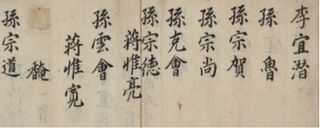 李宜潛
孫魯
孫宗賀
孫宗尚
孫克會
孫宗德
蔣惟亮
孫雲會
蔣惟寬
孫宗道